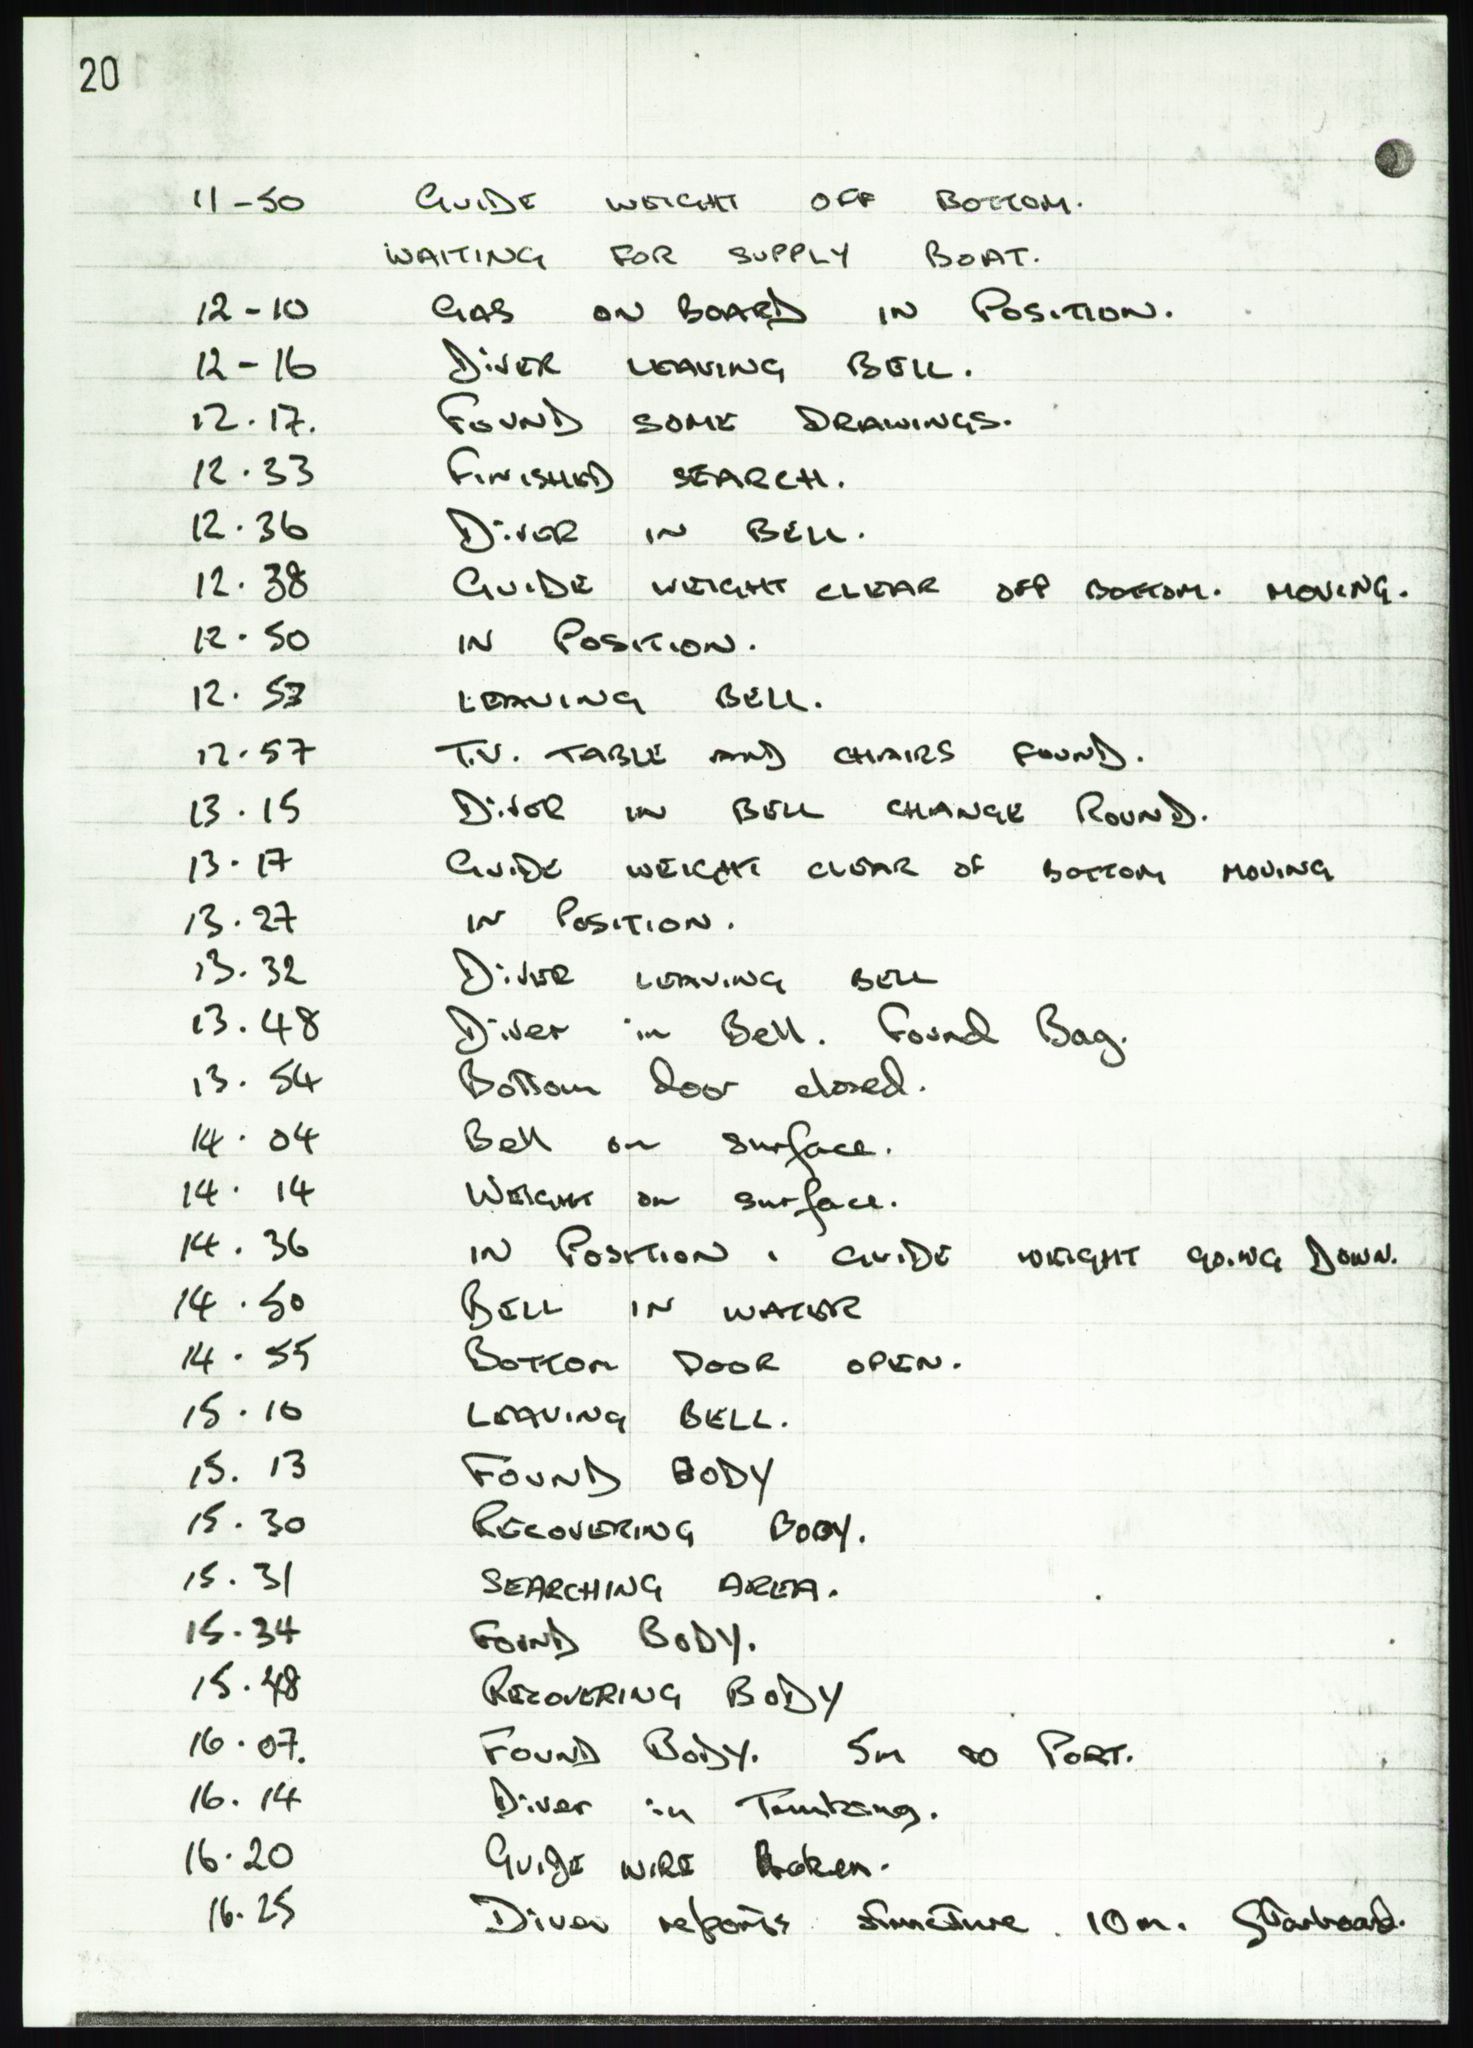 20
11-50 GUIDE WEIGHT OFF BOTTOM.
WAITING FOR SUPPLY BOAT.
12-10 GAS ON BOARD IN POSITION.
12-16 DIVER LEAVING BELL.
12.17. FOUND SOME DRAWINGS.
12.33 FINISHED SEARCH.
12.36 DIVER IN BELL.
12.38 GUIDE WEIGHT CLEAR OFF BOTTOM. MOVING.
12.50 IN POSITION.
12.53 LEAVING BELL.
12.57 T.V. TABLE AND CHAIRS FOUND.
13.15 DIVER IN BELL CHANGE ROUND.
13.17 GUIDE WEIGHT CLEAR OF BOTTOM MOVING
13.27 IN POSITION.
13.32 DIVER LEAVING BELL
13.48 Diver in Bell. Found Bag.
13.54 Bottom door closed.
14.04 Bell on surface.
14.14 WEIGHT on surface.
14.36 IN POSITION. GUIDE WEIGHT GOING DOWN.
14.50 BELL IN WATER
14.55 BOTTOM DOOR OPEN.
15.10 LEAVING BELL.
15.13 FOUND BODY
15.30 RECOVERING BODY.
15.31 SEARCHING AREA.
15.34 FOUND BODY.
15.48 RECOVERING BODY
16.07. FOUND BODY. 5m TO PORT.
16.14 Diver in
16.20 GUIDE WIRE Broken.
16.25 Diver reports structure 10m. Starboard.